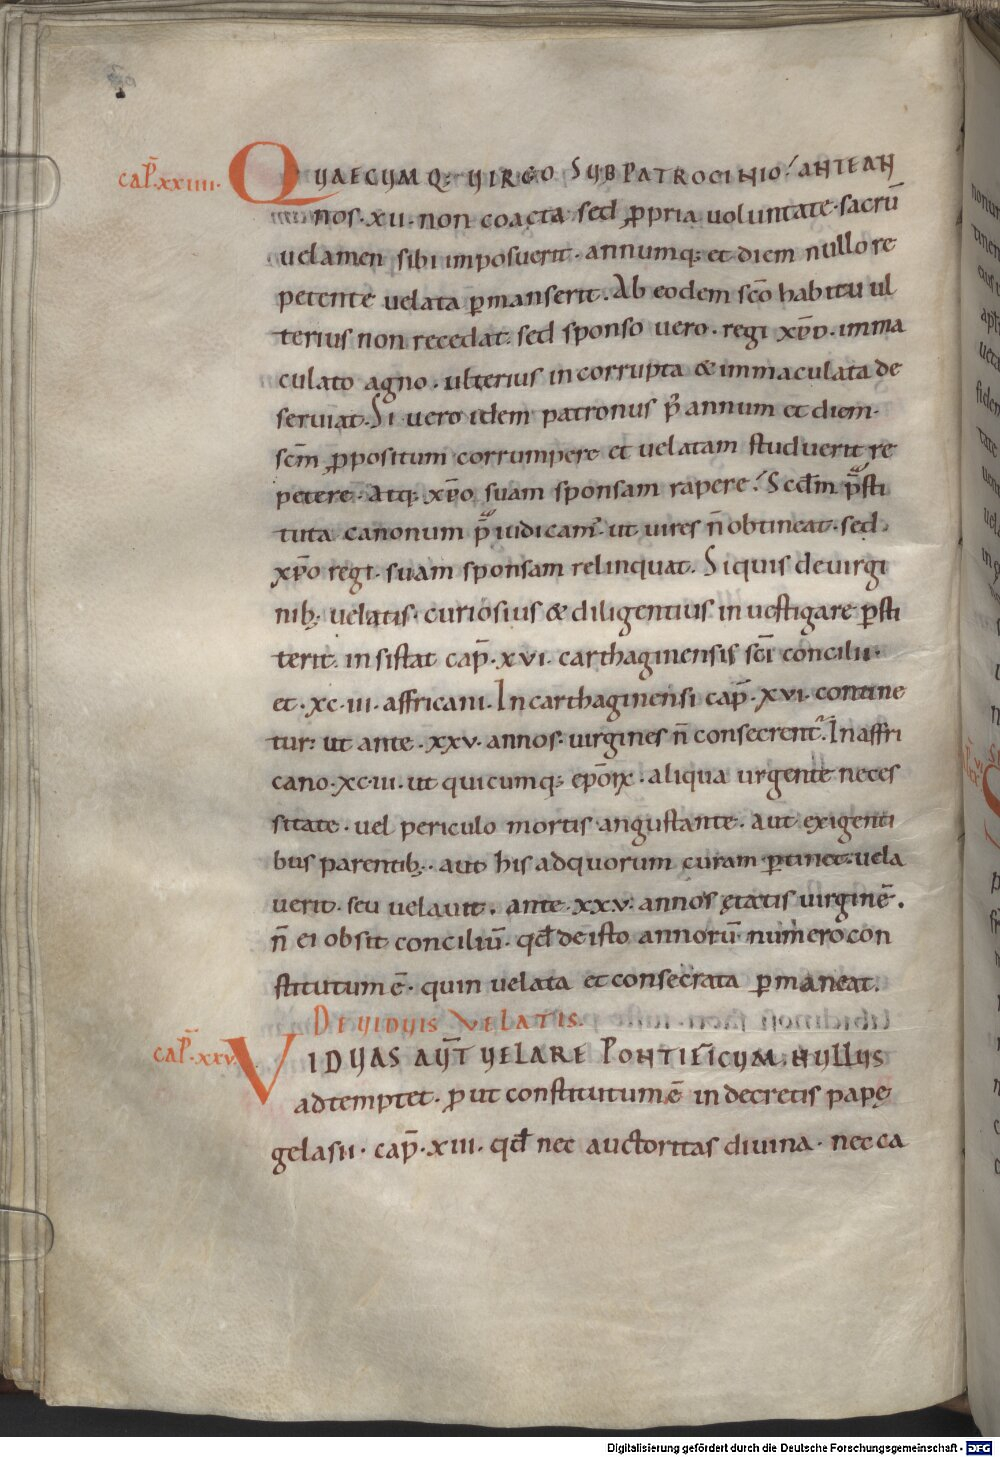 cap̅ · xxiiii ·
QUAECUMQ: VIRGO SUB PATROCINIO / ANTE AN
nos · xii · non coacta sed ꝓpria uoluntate · sacrū
uelamen sibi imposuerit · annumq: et diem nullo re
petente uelata ꝑmanserit. Ab eodem scō habitu ul
terius non recedat · sed sponso uero · regi xp̅o · imma
culato agno · ulterius incorrupta & immaculata de
seruiat. Si uero idem patronus p̄ annum et diem ·
scm̄ ꝓpositum corrumpere et uelatam studuerit re
petere · atq: xp̅o suam sponsam rapere / Scdm̄ p̄sti
tuta canonum p̄iudicam̄ · ut uires n̄ obtineat · sed ·
xp̅o regi · suam sponsam relinquat. Siquis de uirgi
nib; uelatis · curiosius & diligentius inuestigare ꝑsti
terit · insistat cap̅ · xvi · carthaginensis sc̄i concilii ·
et · xc · iii · affricani. In carthaginensi cap̅ · xvi · contine
tur: ut ante · xxv · annos · uirgines n̄ consecrent̄. In affri
cano · xc · iii · ut quicumq: ep̄orꝝ · aliqua urgente neces
sitate · uel periculo mortis angustante · aut exigenti
bus parentib; · aut his ad quorum curam ꝑtinet · uela
uerit · seu uelauit. ante · xxv · annos ętatis uirginē.
n̄ ei obsit conciliū · qd̄ de isto annorū numero con
stitutum ē · quin uelata et consecrata ꝑmaneat.
DE VIDUIS VELATIS.
cap̅ · xxv ·
VIDUAS AUT̄ VELARE PONTIFICUM · NULLUS
adtemptet · ꝓut constitutum ē in decretis papę
gelasii · cap̅ · xiii · qd̄ nec auctoritas diuina · nec ca
Digitalisierung gefördert durch die Deutsche Forschungsgemeinschaft - DFG